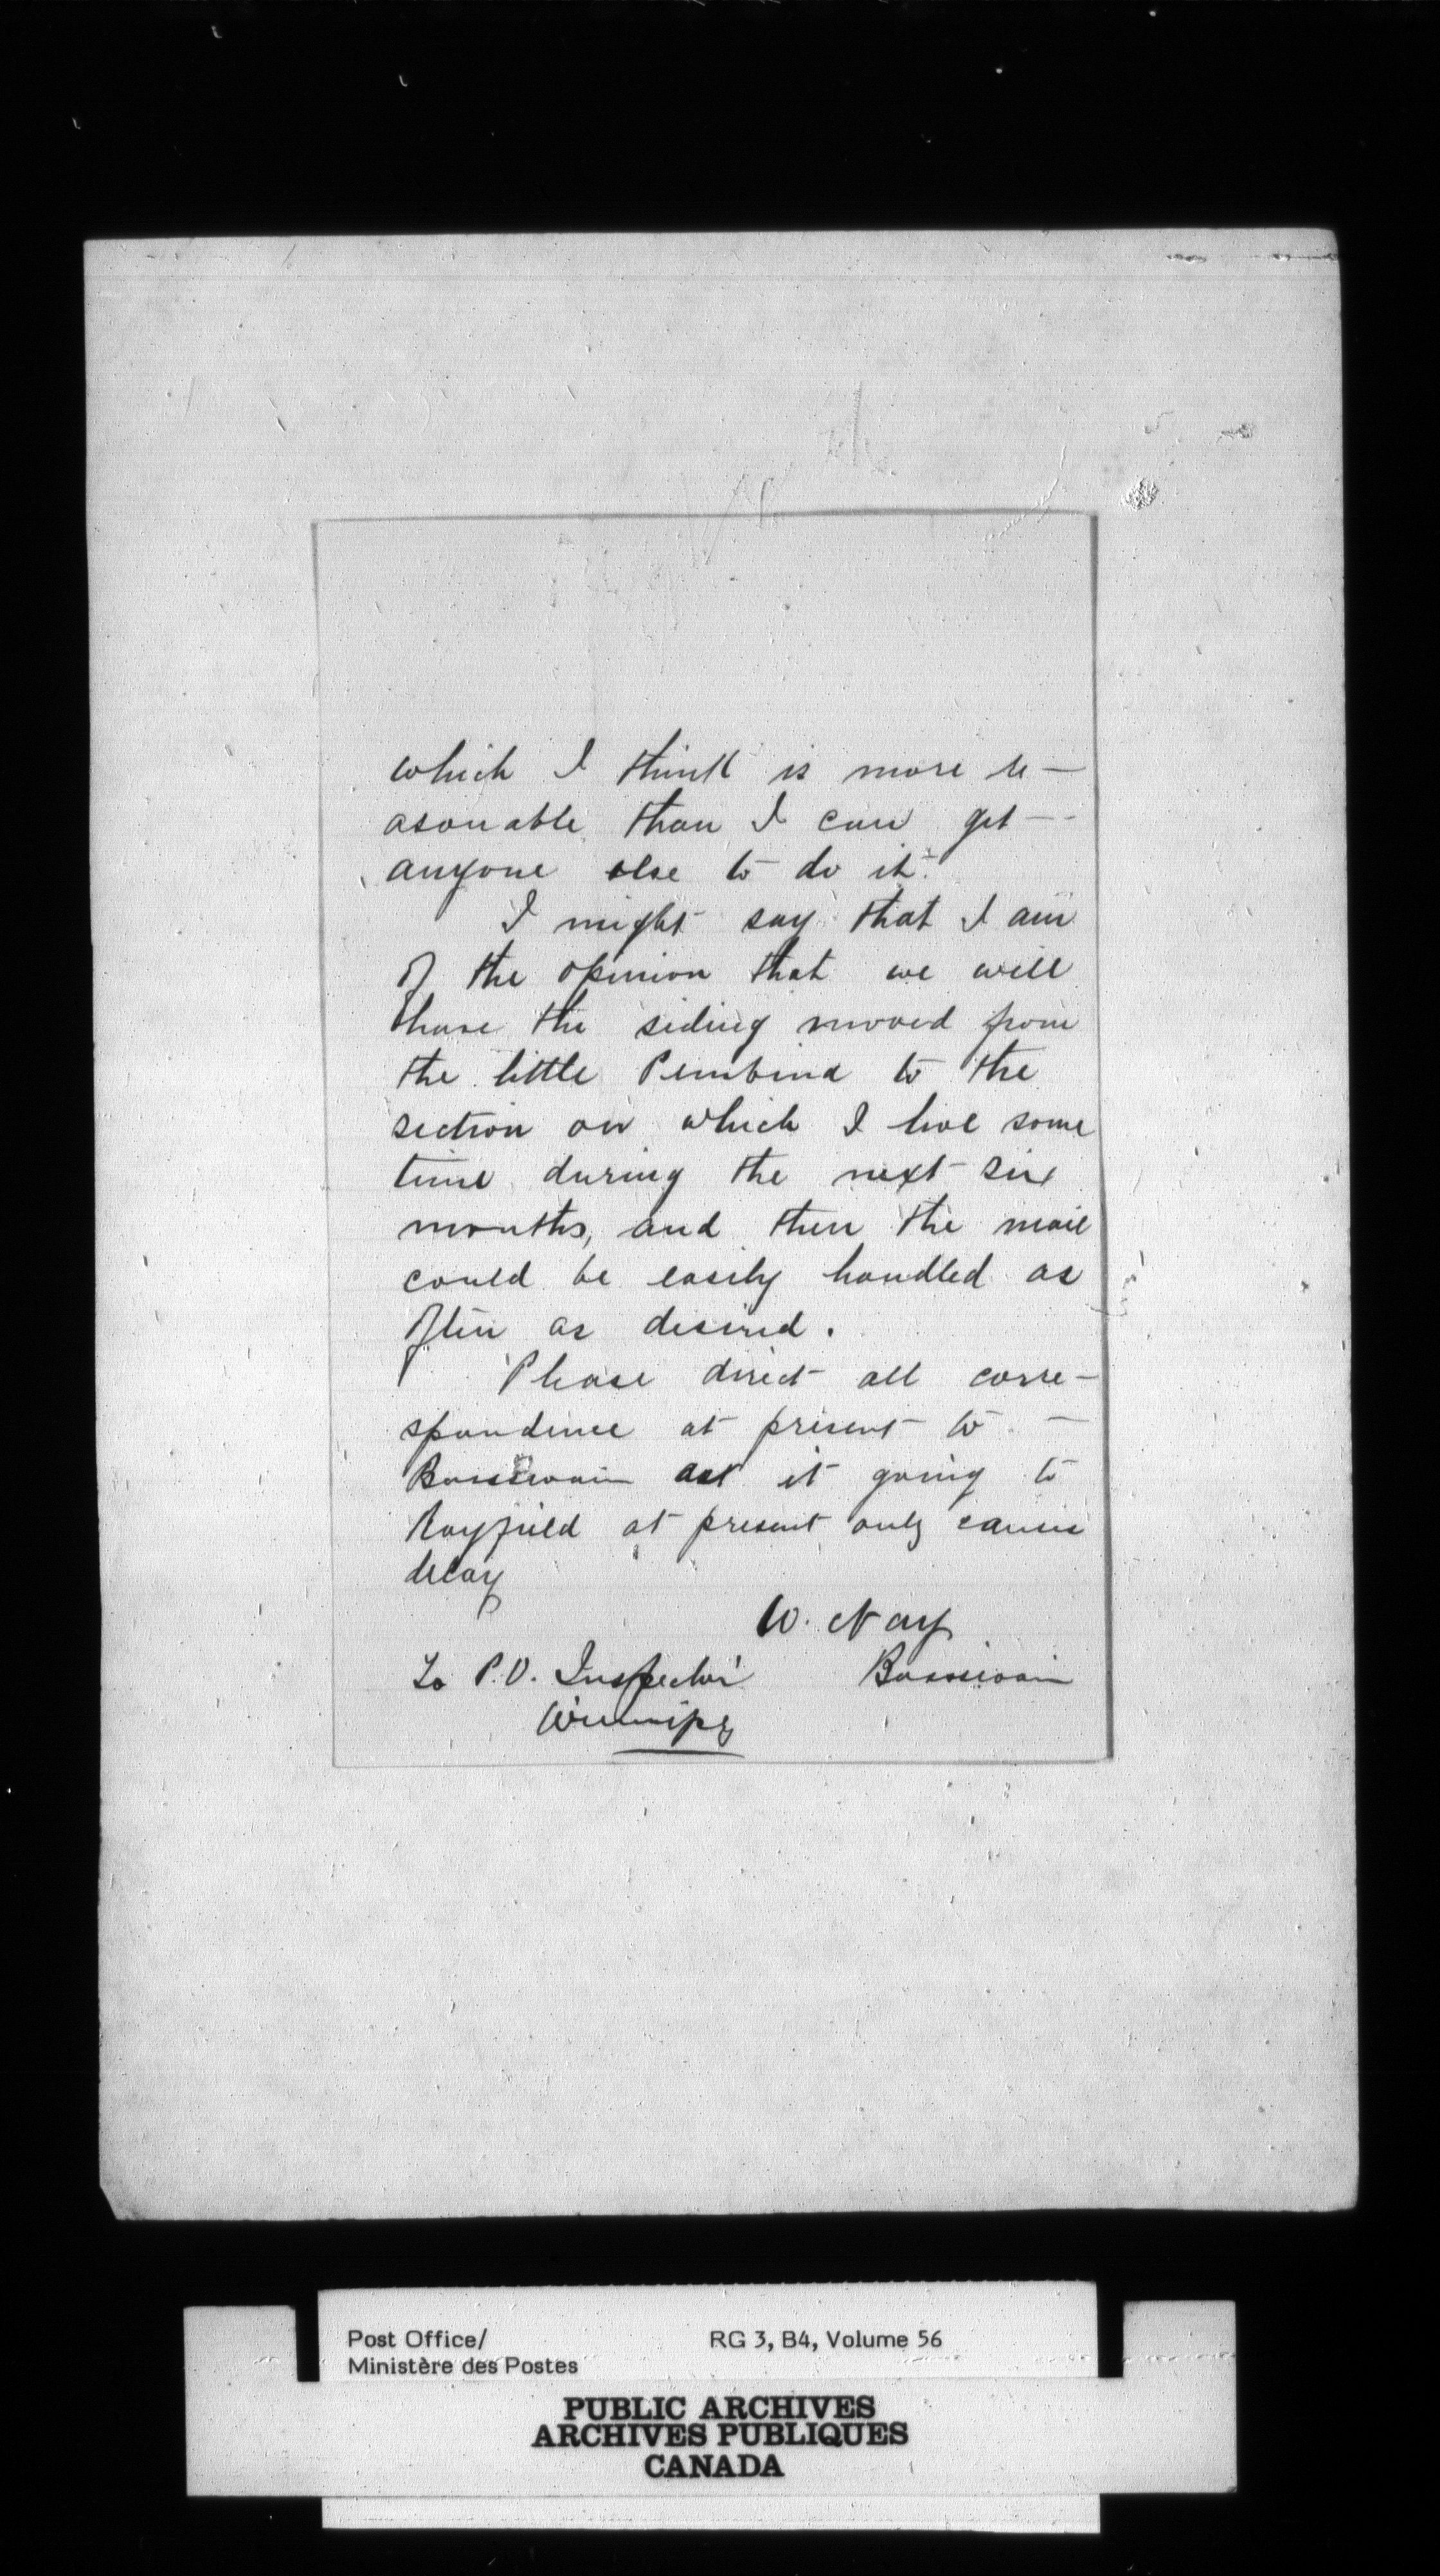 which I think is more re-
asonable than I can get --
anyone else to do it.
I might say that I am
of the opinion that we will
have the siding moved from
the little Pembina to the
section on which I live some
time during the next six
months, and then the mail
could be easily handled as
often as desired.
Please direct all corre-
spondence at present to -
Boissevain as it going to
Rayfield at present only causes
delay
W. Nay
To P.O. Inspector Boissevain
Winnipeg
Post Office/ RG 3, B4, Volume 56
Ministère des Postes
PUBLIC ARCHIVES
ARCHIVES PUBLIQUES
CANADA